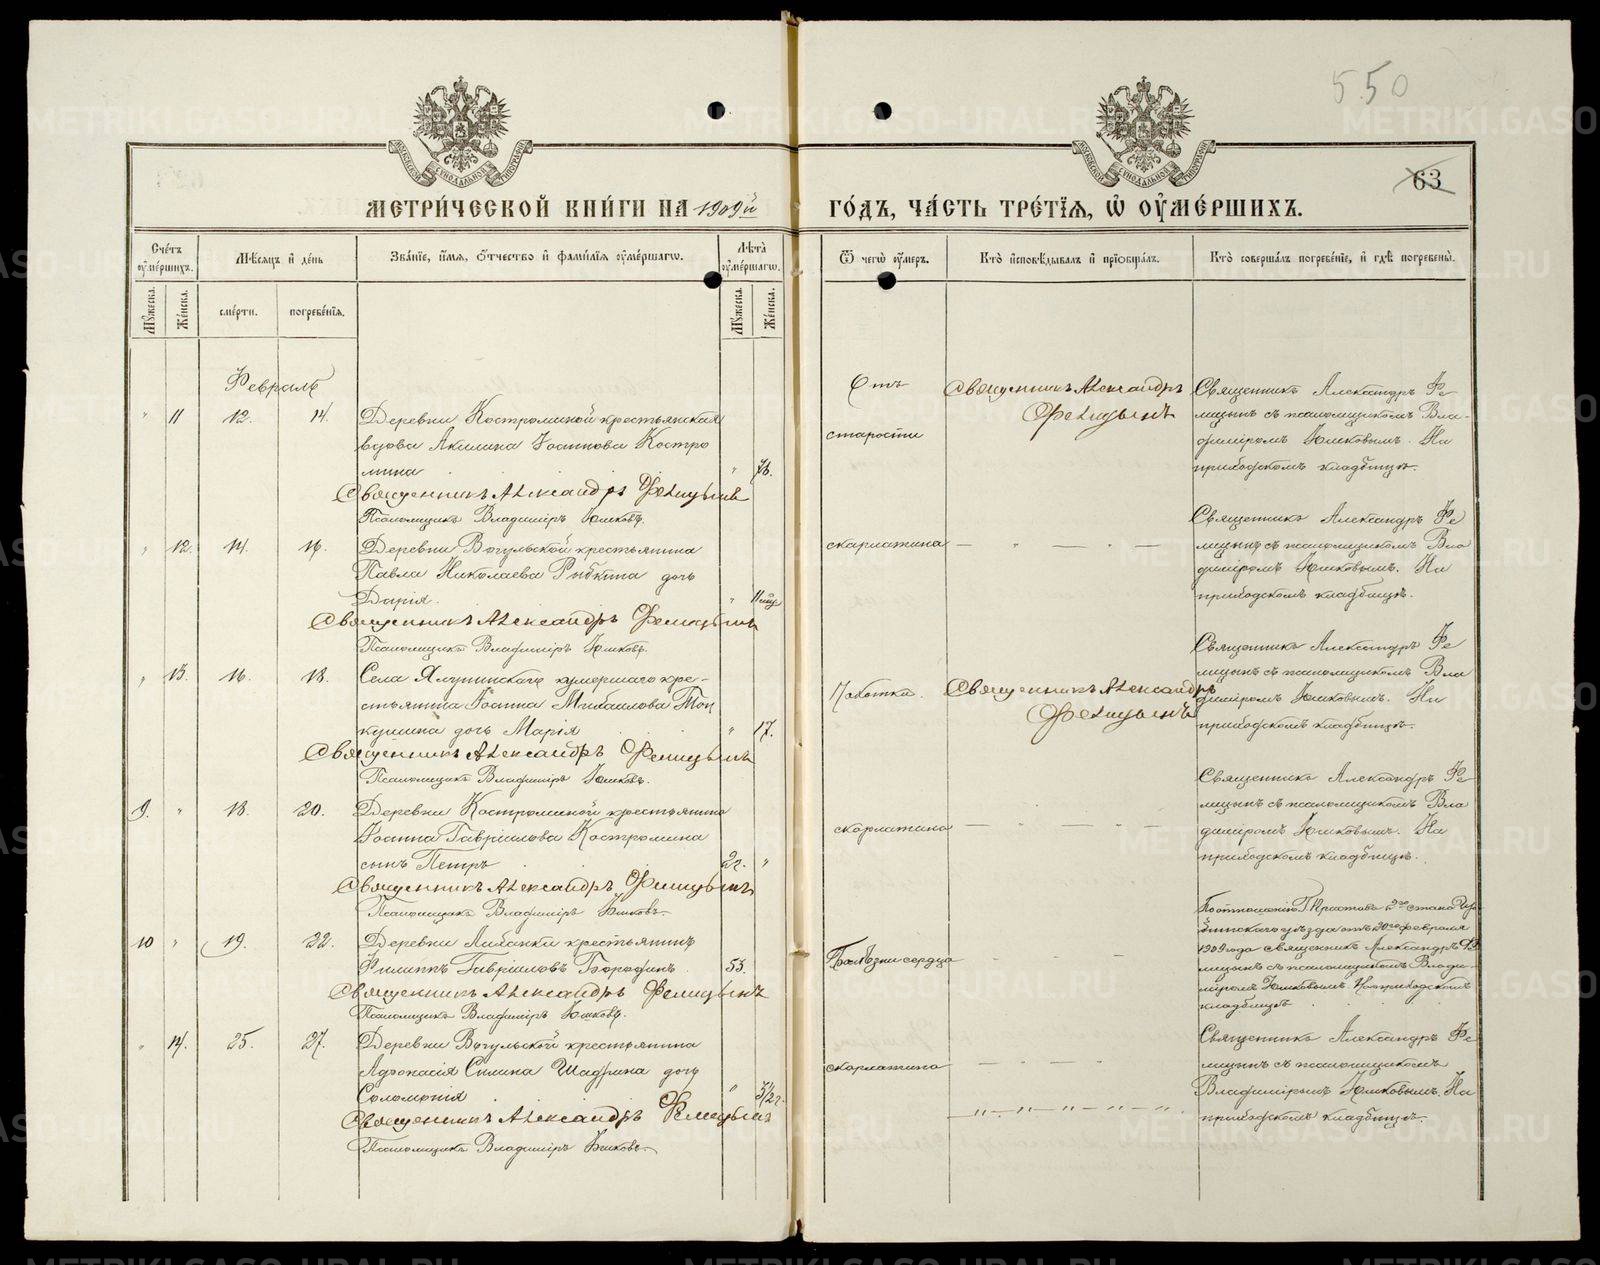 550
63
МОСКОВСКОЙ СѴНОДАЛЬНОЙ ТИПОГРАФІИ
МОСКОВСКОЙ СѴНОДАЛЬНОЙ ТИПОГРАФІИ
МЕТРИ́ЧЕСКОЙ КНИ́ГИ НА 1909й
ГО́ДЪ, ЧА́СТЬ ТРЕ́ТІѦ, Ѡ҆ ОУ҆МЕ́РШИХЪ.
Сче́тъ оу҆ме́ршихъ.
Мѣ́сѧцъ и҆ де́нь
Зва́нїе, и҆́мѧ, ѻ҆́тчество и҆ фами́лїѧ оу҆ме́ршагѡ.
Лѣ́та оу҆ме́ршагѡ.
Мꙋ́жеска.
Же́нска.
сме́рти.
погребе́нїѧ.
Мꙋ́жеска.
Же́нска.
Ѿ чегѡ̀ оу҆́меръ.
Кто̀ и҆сповѣ́дывалъ и҆ прїѡбща́лъ.
Кто̀ соверша́лъ погребе́нїе, и҆ гдѣ̀ погребены̀.
Февраль
" 11 12. 14. Деревни Костроминой крестьянская
вдова Акилина Іоаннова Костро
мина " 76.
Священникъ Александръ Фелицынъ
Псаломщикъ Владиміръ Юшковъ.
Отъ
старости
Священникъ Александръ
Фелицынъ
Священникъ Александръ Фе
лицынъ съ псаломщикомъ Вла-
диміромъ Юшковымъ. На
приходскомъ кладбищѣ.
" 12. 14. 16. Деревни Вогульской крестьянина
Павла Николаева Рябкина дочь
Дарія. " 11 мц
Священникъ Александръ Фелицынъ
Псаломщикъ Владиміръ Юшковъ.
скарлатина — " — " —
Священникъ Александръ Фе
лицынъ съ псаломщикомъ Вла
диміромъ Юшковымъ. На
приходскомъ кладбищѣ.
" 13. 16. 18. Села умершаго кре-
стьянина Іоанна Михаилова Топ
кушина дочь Марія " 17.
Священникъ Александръ Фелицынъ
Псаломщикъ Владиміръ Юшковъ.
Чахотка. Священникъ Александръ
Фелицынъ
Священникъ Александръ Фе
лицынъ съ псаломщикомъ Вла
диміромъ Юшковымъ. На
приходскомъ кладбищѣ.
9. " 18. 20. Деревни Костроминой крестьянина
Іоанна Гавріилова Костромина
сынъ Петръ 2 г. "
Священникъ Александръ Фелицынъ
Псаломщикъ Владиміръ Юшковъ.
скарлатина
Священникъ Александръ Фе
лицынъ съ псаломщикомъ Вла
диміромъ Юшковымъ. На
приходскомъ кладбищѣ.
10 " 19. 22. Деревни крестьянинъ
Филиппъ Гавріиловъ 53.
Священникъ Александръ Фелицынъ
Псаломщикъ Владиміръ Юшковъ.
Болѣзни сердца
По отношенію Г. Пристава 2го стана Ир
битскаго уѣзда отъ 20го февраля
1909 года священникъ Александръ Фе
лицынъ съ псаломщикомъ Влади-
міромъ Юшковымъ. На приходскомъ
кладбищѣ
" 14. 25. 27. Деревни Вогульской крестьянина
Аѳонасія Силина Шадрина дочь
Соломонія " 3½ г.
Священникъ Александръ Фелицынъ
Псаломщикъ Владиміръ Юшковъ.
скарлатина
— " — " — " — " — " —
Священникъ Александръ Фе
лицынъ съ псаломщикомъ
Владиміромъ Юшковымъ. На
приходскомъ кладбищѣ.
METRIKI.GASO-URAL.RU